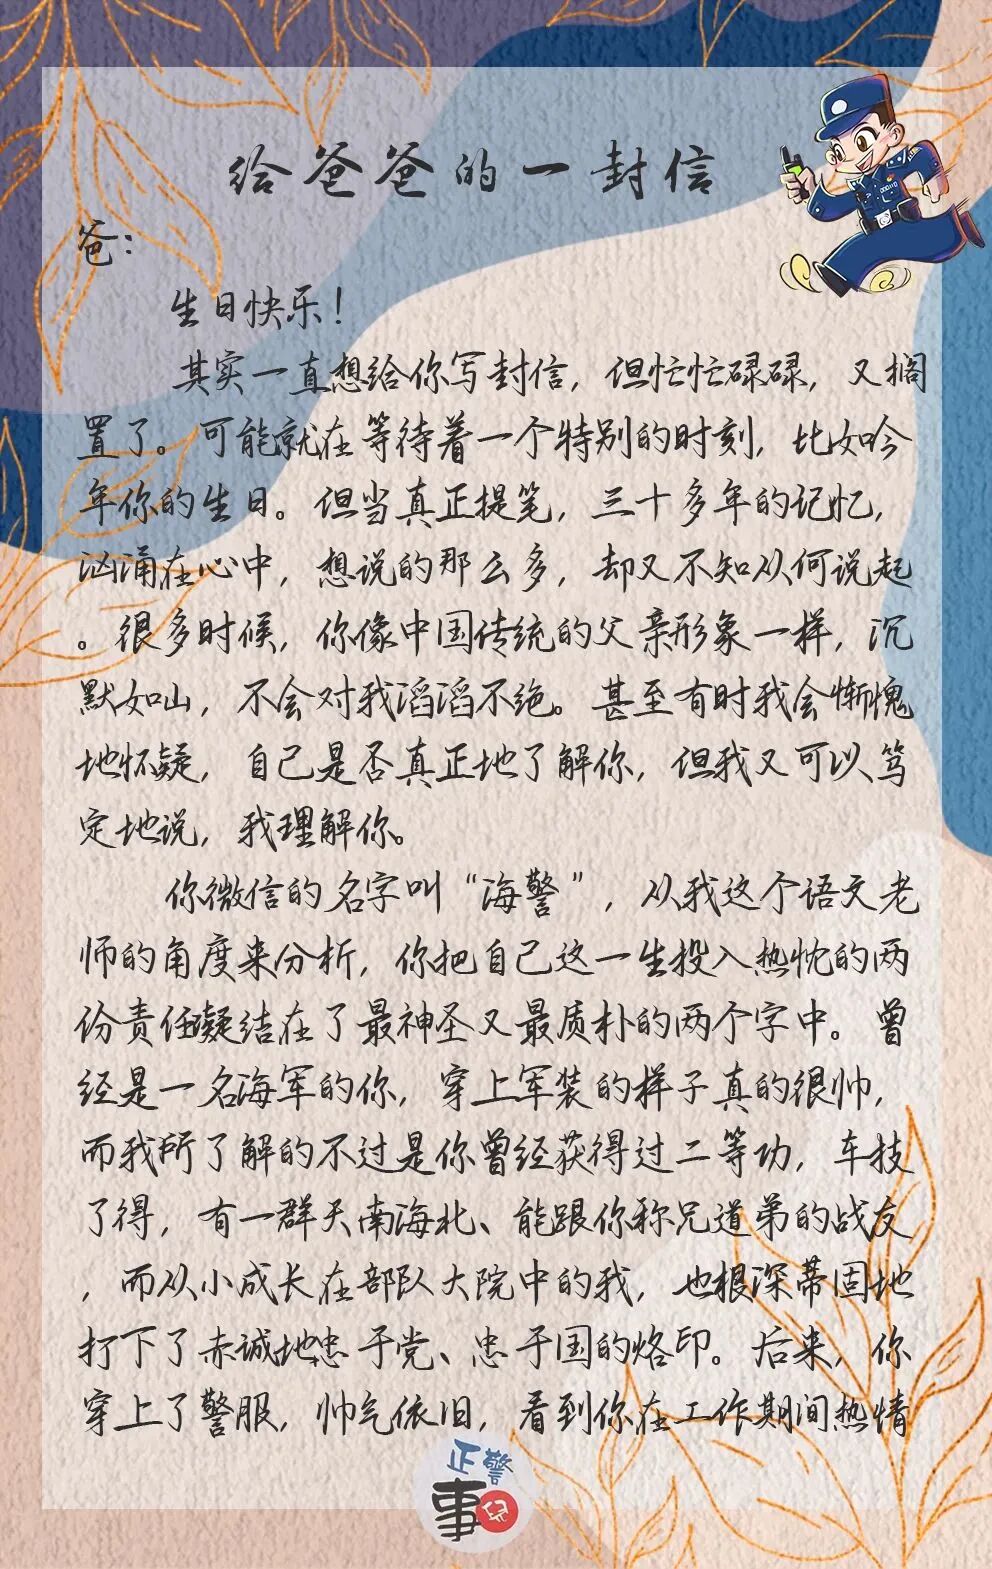 给爸爸的一封信
爸：
生日快乐！
其实一直想给你写封信，但忙忙碌碌，又搁
置了。可能就在等待着一个特别的时刻，比如今
年你的生日。但当真正提笔，三十多年的记忆，
汹涌在心中，想说的那么多，却又不知从何说起
。很多时候，你像中国传统的父亲形象一样，沉
默如山，不会对我滔滔不绝。甚至有时我会惭愧
地怀疑，自己是否真正地了解你，但我又可以笃
定地说，我理解你。
你微信的名字叫“海警”，从我这个语文老
师的角度来分析，你把自己这一生投入热忱的两
份责任凝结在了最神圣又最质朴的两个字中。曾
经是一名海军的你，穿上军装的样子真的很帅，
而我所了解的不过是你曾经获得过二等功，车技
了得，有一群天南海北、能跟你称兄道弟的战友
，而从小成长在部队大院中的我，也根深蒂固地
打下了赤诚地忠于党、忠于国的烙印。后来，你
穿上了警服，帅气依旧，看到你在工作期间热情
正警
事儿